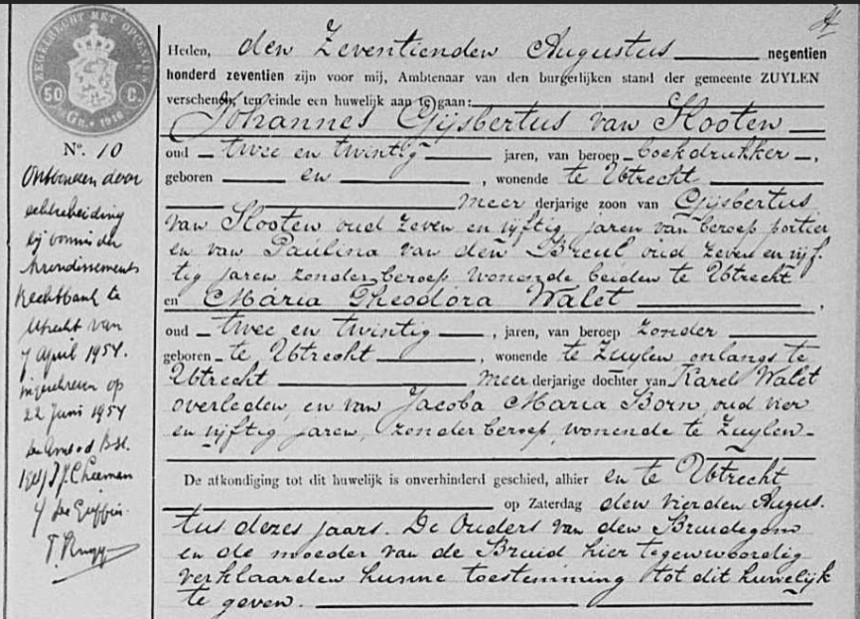 ZEGELRECHT MET OPCENTEN
50 C.
1916
Heden, den Zeventienden Augustus negentien
honderd zeventien zijn voor mij, Ambtenaar van den burgerlijken stand der gemeente ZUYLEN
verschenen, ten einde een huwelijk aan te gaan:
Johannes Gijsbertus van Slooten
oud twee en twintig jaren, van beroep boekdrukker,
geboren en, wonende te Utrecht
meerderjarige zoon van Gijsbertus
van Slooten oud zeven en vijftig jaren van beroep portier
en van Paulina van den Breul oud zeven en vijf-
tig jaren zonder beroep wonende beiden te Utrecht
en Maria Theodora Walet,
oud twee en twintig, jaren, van beroep zonder
geboren te Utrecht, wonende te Zuylen onlangs te
Utrecht meerderjarige dochter van Karel Walet
overleden, en van Jacoba Maria Born, oud vier
en vijftig jaren, zonder beroep, wonende te Zuylen.
De afkondiging tot dit huwelijk is onverhinderd geschied, alhier en te Utrecht
op Zaterdag den vierden Augus-
tus dezes jaars. De Ouders van den Bruidegom
en de moeder van de Bruid hier tegenwoordig
verklaarden hunne toestemming tot dit huwelijk
te geven.
No. 10
Ontbonden door
echtscheiding
bij vonnis der
Arrondissements
Rechtbank te
Utrecht van
7 April 1954.
ingeschreven op
22 Juni 1954